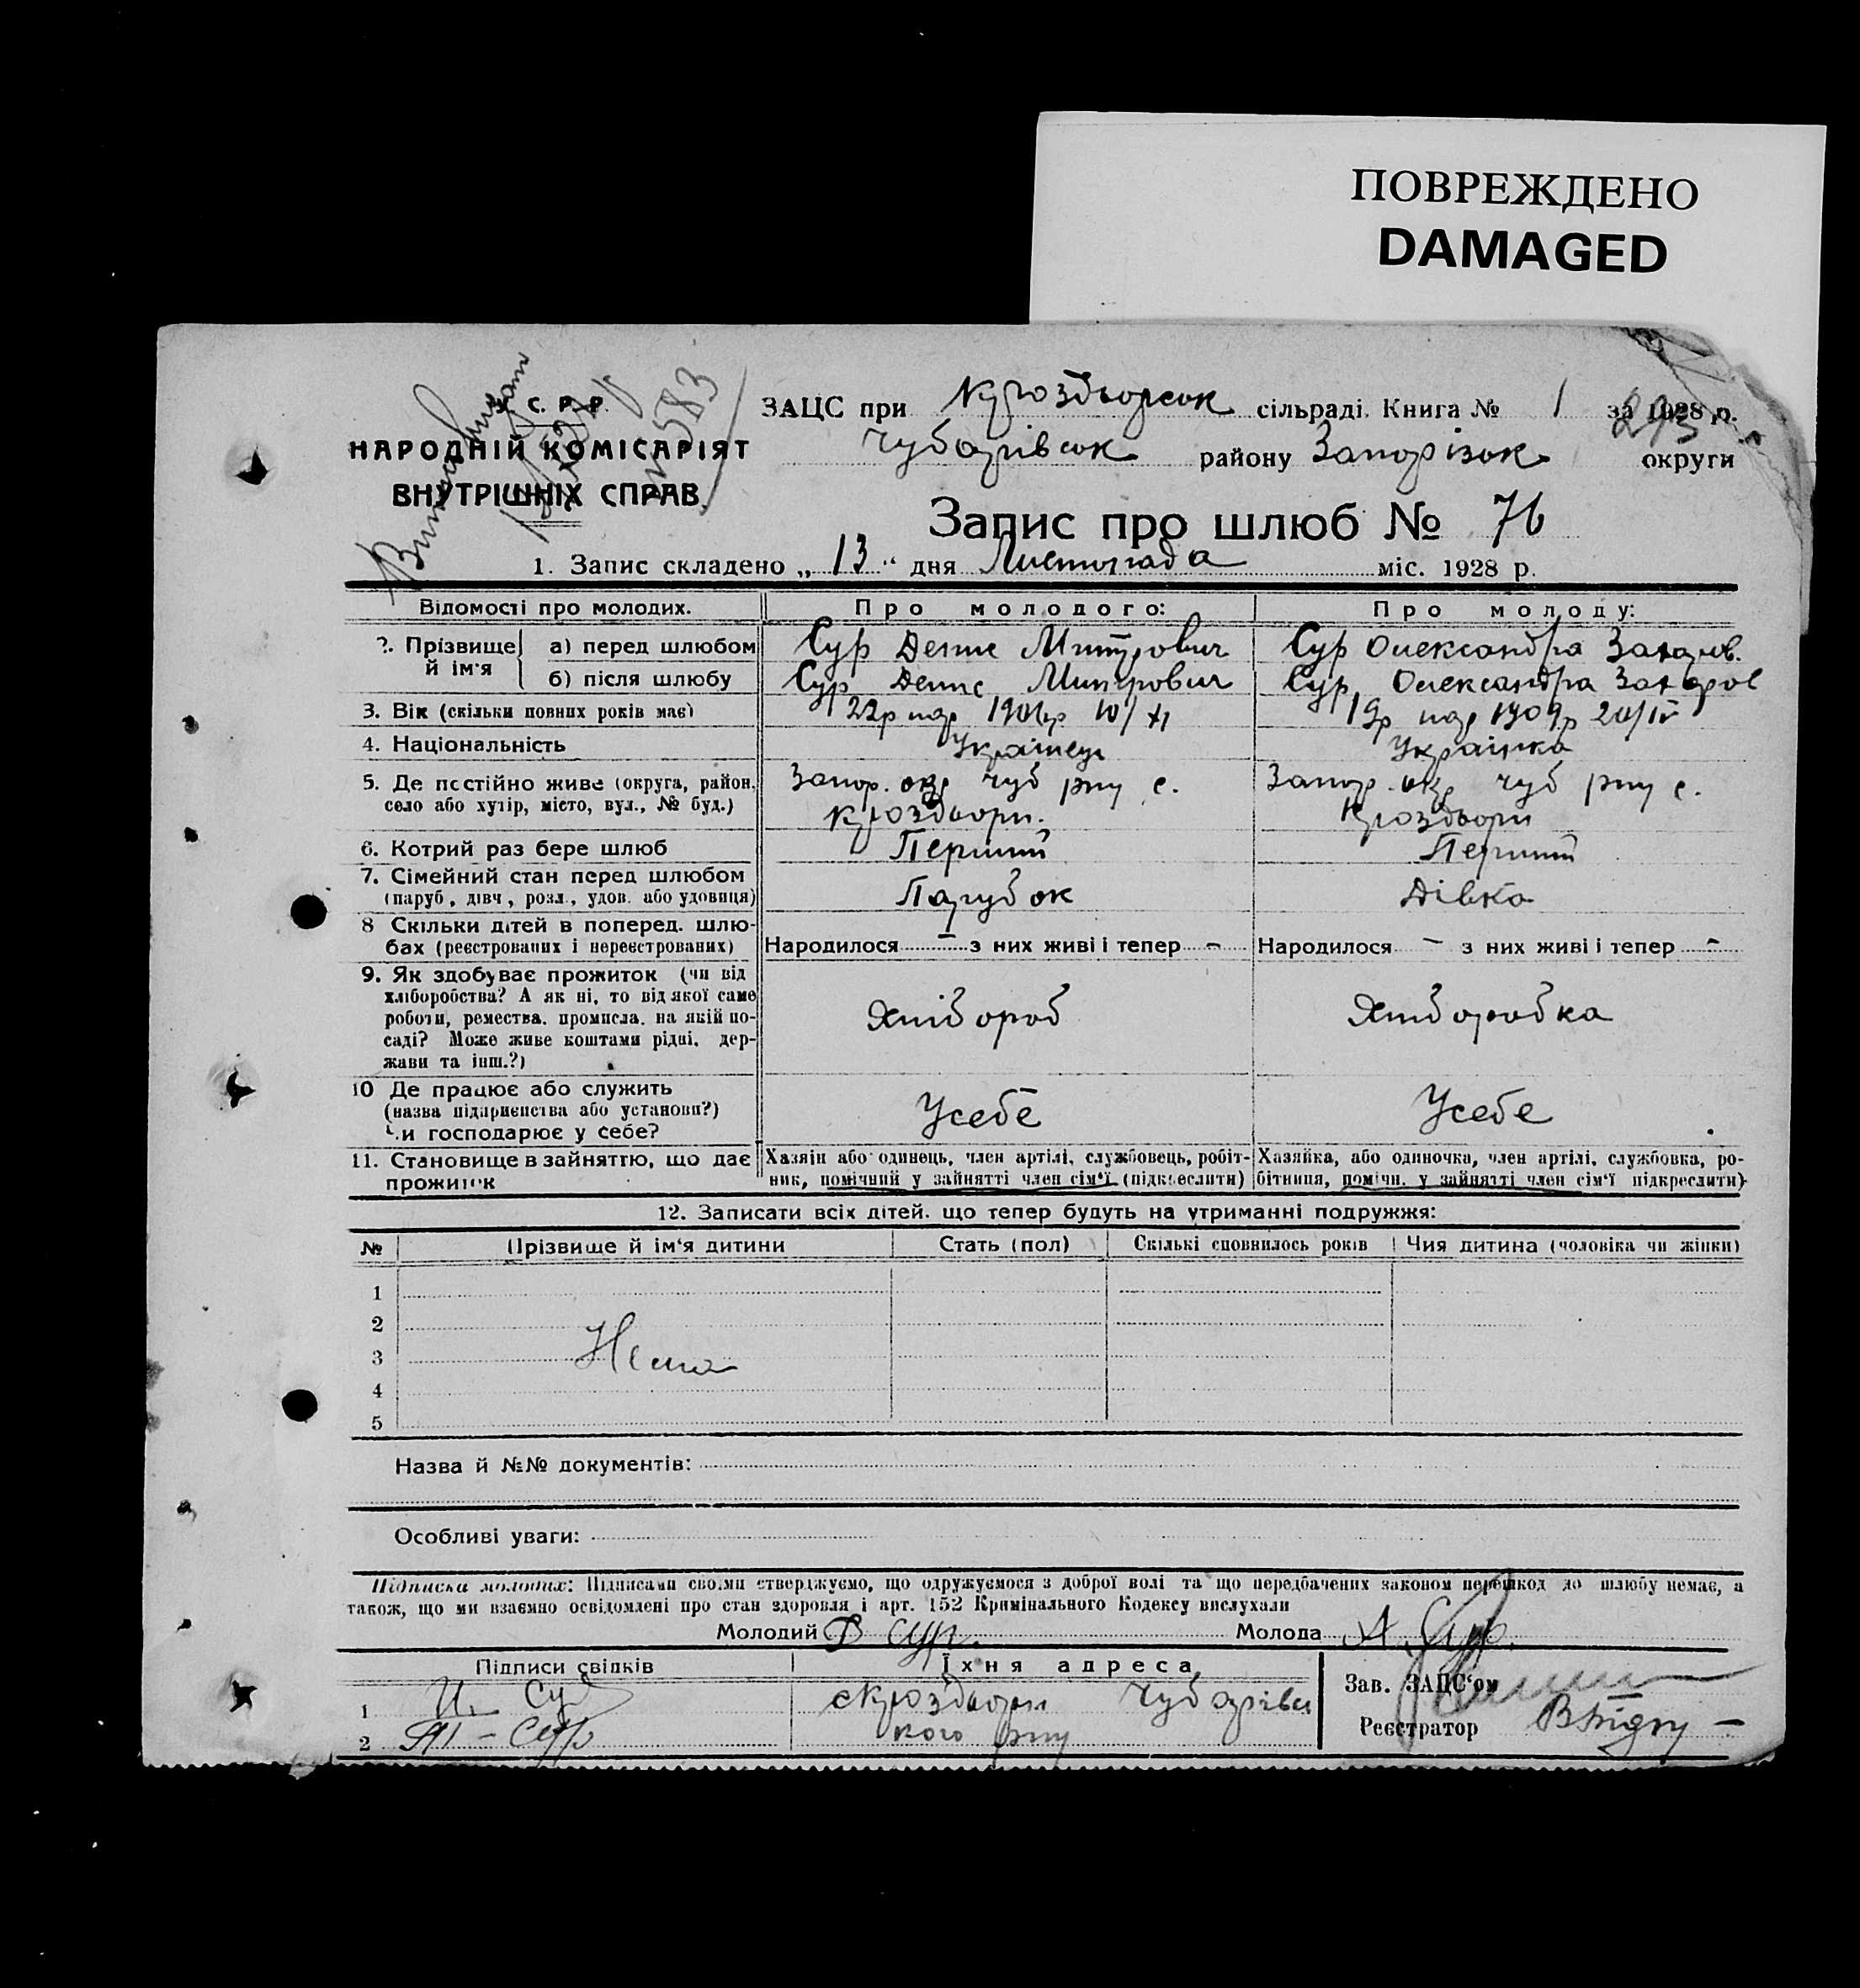 ПОВРЕЖДЕНО
DAMAGED
У. С. Р. Р.
НАРОДНІЙ КОМІСАРІЯТ
ВНУТРІШНІХ СПРАВ.
583
ЗАЦС при сільраді. Книга № 1 за 1928 р.
Чубарівськ району Запорізьк округи
Запис про шлюб № 76
1. Запис складено „ 13 “ дня Листопада міс. 1928 р.
Відомості про молодих. Про молодого: Про молоду:
2. Прізвище й ім'я а) перед шлюбом Сур Денис Митрович Сур Олександра Захаров.
б) після шлюбу Сур Денис Митрович Сур Олександра Захаров
3. Вік (скільки повних років має) 22р нар 10/XI 19р нар 1909р 20/IV
4. Національність Українець Українка
5. Де постійно живе (округа, район, село або хутір, місто, вул., № буд.) Запор. окр Чуб рну с. Запор. окр Чуб рну с.
6. Котрий раз бере шлюб Перший Перший
7. Сімейний стан перед шлюбом (паруб., дівч., розл., удов. або удовиця) Парубок Дівка
8 Скільки дітей в поперед. шлюбах (реєстрованих і нереєстрованих) Народилося – з них живі і тепер – Народилося – з них живі і тепер –
9. Як здобуває прожиток (чи від хліборобства? А як ні, то від якої саме роботи, ремества, промисла, на якій посаді? Може живе коштами рідні, держави та інш.?) Хлібороб Хліборобка
10 Де працює або служить (назва підприємства або установи?) Чи господарює у себе? Усебе Усебе
11. Становище в зайняттю, що дає прожиток Хазяїн або одинець, член артілі, службовець, робітник, помічний у зайнятті член сім'ї (підкреслити) Хазяйка, або одиночка, член артілі, службовка, робітниця, помічн. у зайнятті член сім'ї підкреслити)
12. Записати всіх дітей. що тепер будуть на утриманні подружжя:
№ Прізвище й ім'я дитини Стать (пол) Скількі сповнилось років Чия дитина (чоловіка чи жінки)
1
2
3 Нема
4
5
Назва й №№ документів:
Особливі уваги:
Підписка молодих: Підписами своїми стверджуємо, що одружуємося з доброї волі та що передбачених законом перешкод до шлюбу немає, а
також, що ми взаємно освідомлені про стан здоровля і арт. 152 Кримінального Кодексу вислухали
Молодий Д Сур. Молода А. Сур.
Підписи свідків Їхня адреса Зав. ЗАЦС'ом
1 Сур Чубарівсь
2 Сур кого рну Реєстратор